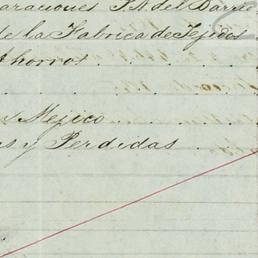 araciones P. A. del Barrio
de la Fabrica de Tejidos
Ahorros
Mejico
as y Perdidas